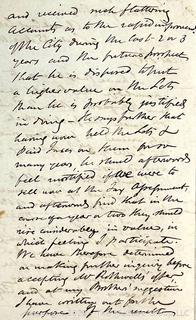 and received such flattering
accounts as to the rapid improve
of the City during the last 2 or 3
years and the future prospects
that he is disposed to put
a higher value on the Lots
than he is probably justified
in doing. He says further that
having now held the Lots &
paid Taxes on them for so
many years he should afterwards
feel mortified if we were to
sell now at the
and afterwards find that in the
course of a year or two they should
rise considerably in value, in
which feeling I participate.
We have therefore determined
on making further inquiry before
accepting Mr Rothwell's offer
and at my Brother's suggestion
I have written out for the
purpose. If the result